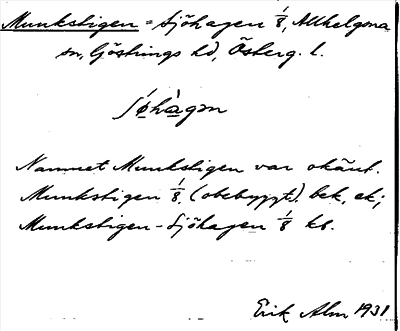 Munkstigen = Sjöhagen 1/8, Allhelgona
sn, Göstrings hd, Österg. l.
Namnet Munkstigen var okänt.
Munkstigen 1/8 (obebyggt). bek. ek;
Munkstigen - Sjöhagen 1/8 kb.
Erik Alm 1931